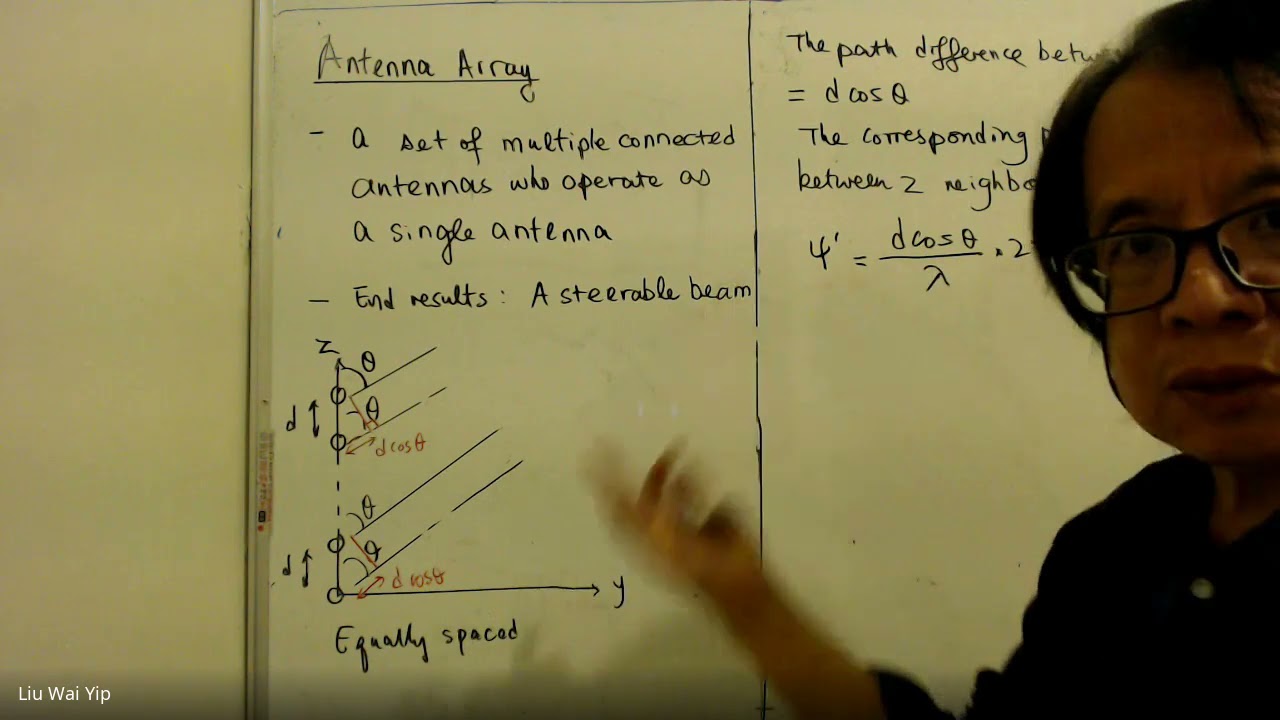 Antenna Array
- a set of multiple connected
antennas who operate as
a single antenna
- End results : A steerable beam
z
θ
θ
d
d cos θ
θ
θ
d
d cos θ
y
Equally spaced
The path difference betw
= d cos θ
The corresponding
between 2 neighbo
ψ' = d cos θ / λ · 2
Liu Wai Yip